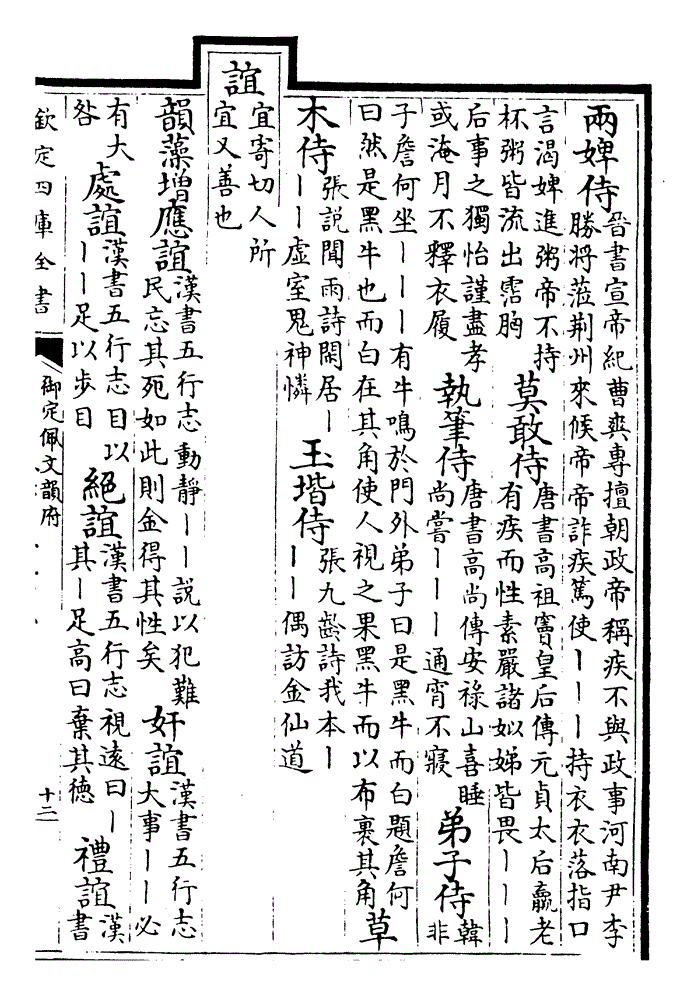 兩婢侍
晉書宣帝紀曹爽專擅朝政帝稱疾不與政事河南尹李
勝將蒞荊州來候帝帝詐疾篤使丨丨丨持衣衣落指口
言渴婢進粥帝不持
杯粥皆流出霑胸
莫敢侍
唐書高祖竇皇后傳元貞太后羸老
有疾而性素嚴諸姒娣皆畏丨丨丨
后事之獨怡謹盡孝
或淹月不釋衣履
執筆侍
唐書高尚傳安祿山喜睡
尚嘗丨丨丨通宵不寢
弟子侍
韓
非
子詹何坐丨丨丨有牛鳴於門外弟子曰是黑牛而白題詹何
曰然是黑牛也而白在其角使人視之果黑牛而以布裹其角
草
木侍
張説聞雨詩閑居丨
丨丨虛室鬼神憐
玉堦侍
張九齡詩我本丨
丨丨偶訪金仙道
誼
宜寄切人所
宜又善也
韻藻增應誼
漢書五行志動靜丨丨説以犯難
民忘其死如此則金得其性矣
奸誼
漢書五行志
大事丨丨必
有大
咎
處誼
漢書五行志目以
丨丨足以步目
絕誼
漢書五行志視遠曰丨
其丨足高曰棄其徳
禮誼
漢
書
欽定四庫全書
御定佩文韻府
十二